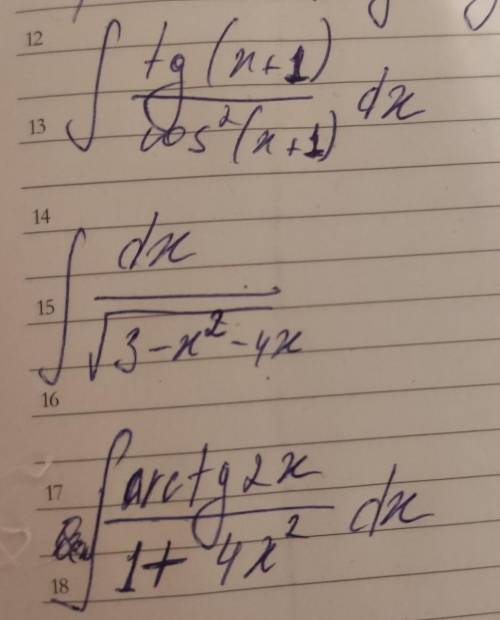 12
∫ tg(x+1) / cos²(x+1) dx
13
14
∫ dx / √(3-x²-4x)
15
16
∫ arctg2x / (1+4x²) dx
17
18